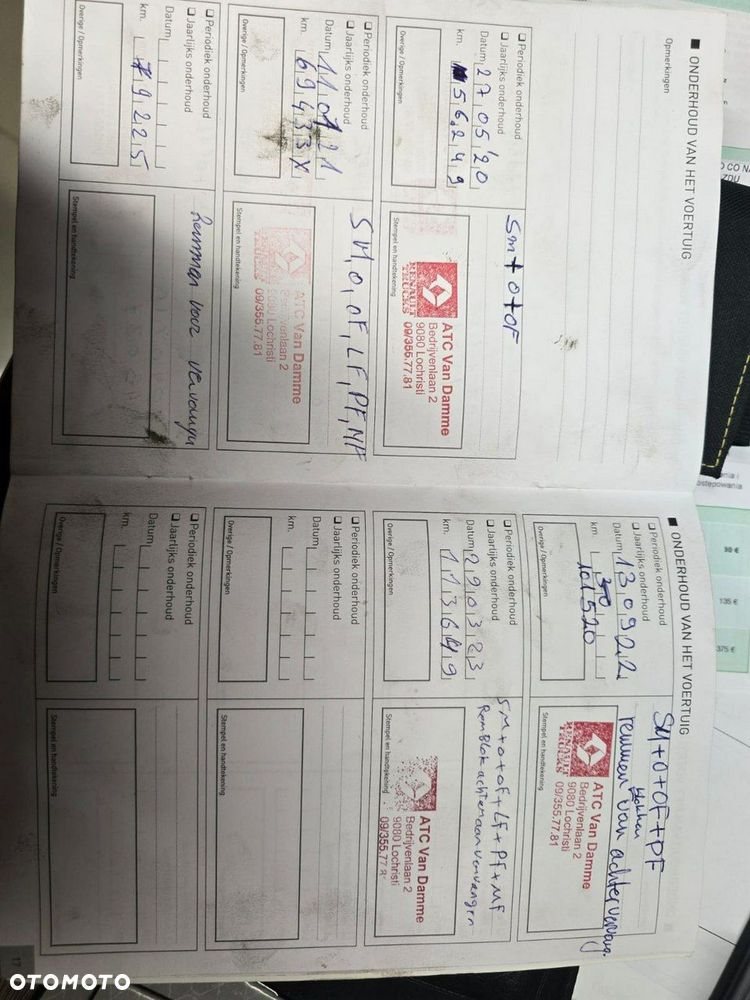 ■ ONDERHOUD VAN HET VOERTUIG
Opmerkingen
❑ Periodiek onderhoud
❑ Jaarlijks onderhoud
Datum 27 05 '20
km. 56.249
Overige / Opmerkingen
Sm + O + OF
ATC Van Damme
Bedrijvenlaan 2
9080 Lochristi
09/355.77.81
RENAULT
TRUCKS
Stempel en handtekening
❑ Periodiek onderhoud
❑ Jaarlijks onderhoud
km. 69433
Overige / Opmerkingen
SM, O, OF, LF, PF, MF
ATC Van Damme
Bedrijvenlaan 2
9080 Lochristi
09/355.77.81
Stempel en handtekening
❑ Periodiek onderhoud
❑ Jaarlijks onderhoud
Datum
km. 79225
Overige / Opmerkingen
Remmen voor
Stempel en handtekening
■ ONDERHOUD VAN HET VOERTUIG
❑ Periodiek onderhoud
❑ Jaarlijks onderhoud
Datum 13 09 22
km.
Overige / Opmerkingen
SM + O + OF + PF
blokken
remmen van achter
ATC Van Damme
Bedrijvenlaan 2
9080 Lochristi
09/355.77.81
RENAULT
TRUCKS
Stempel en handtekening
❑ Periodiek onderhoud
❑ Jaarlijks onderhoud
Datum 29 03 23
km. 113649
Overige / Opmerkingen
SM + O + OF + LF + PF + MF
Remblok achteraan vervangen
ATC Van Damme
Bedrijvenlaan 2
9080 Lochristi
09/355.77.8
Stempel en handtekening
❑ Periodiek onderhoud
❑ Jaarlijks onderhoud
Datum
km.
Overige / Opmerkingen
Stempel en handtekening
❑ Periodiek onderhoud
❑ Jaarlijks onderhoud
Datum
km.
Overige / Opmerkingen
Stempel en handtekening
17
135 €
375 €
OTOMOTO